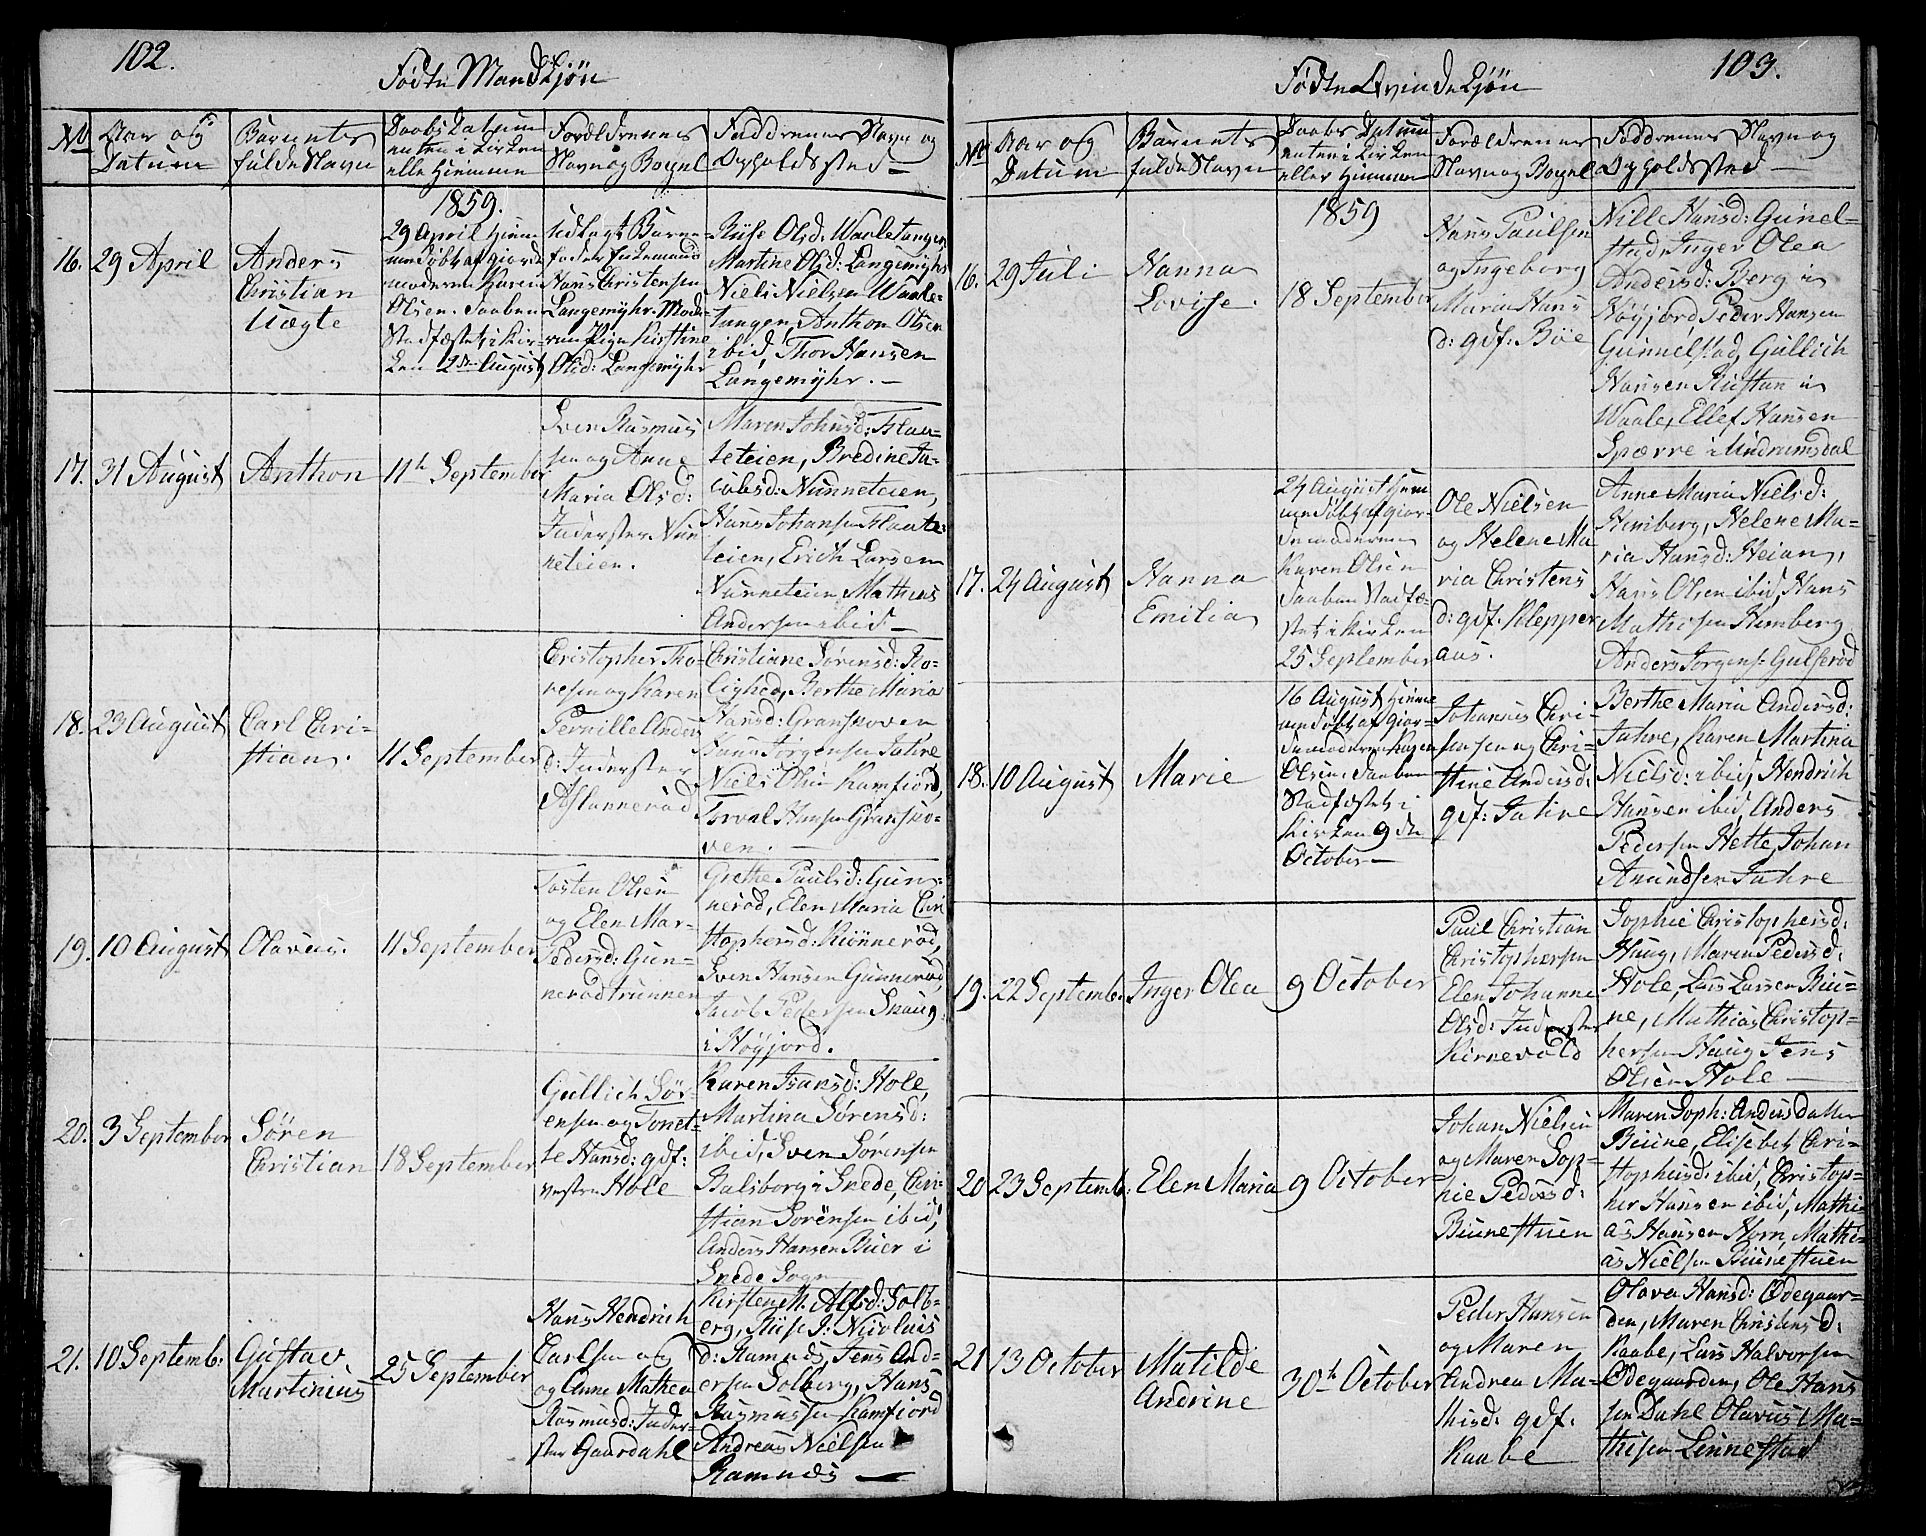 102.
Fødte Mandkjön
No
Aar og
Datum
Barnets
fulde Navn
Daabs Datum
enten i Kirken
elle Hiemme
Forældrenes
Navn og Boepl
Faddrenes Navn og
Opholdssted
1859.
16.
29 April
Anders
Christian
Uægte
29 April hiem
medöbt af giorde
moderen Karen
Olsen. Daaben
Stadfæstet i Kir-
ken 2de August
Udlagt Barne-
fader Enkemand
Hans Christensen
Langemyhr. Mode-
ren Pige Kirstine
Olsd: Langemyhr
Riise Olsd: Waaletangen
Martine Olsd: Langemyhr
Niels Nielsen Waale-
tangen, Anthon Olsen
ibid, Thor Hansen
Langemyhr. —
17.
31 August
Anthon
11th September
Sven Rasmus
sen og Anne
Maria Olsd:
Inderster Nun
neteien.
Maren Johnsd: Flaa-
teteien, Bredine Ja-
cobsd: Nunneteien,
Hans Johansen Flaate-
teien, Erich Larsen
Nunneteien Mathias
Andersen ibid —
18.
23 August
Carl Chri-
stian.
11 September
Christopher Tho-
resen og Karen
Pernille Anders
d: Inderster
Aslannerød
Christiane Sørensd: Ro-
lighed, Berthe Maria
Hansd: Granskoven
Hans Jörgensen Jahre
Niels Olsen Kamfjord,
Torval Hansen Gransko-
ven. —
19.
10 August
Olavus.
11 September
Tosten Olsen
og Elen Mar-
Pedersd: Gun-
nerödtrunnen
Grethe Paulsd: Gun-
neröd, Elen Maria Chri
stophersd: Kiönneröd,
Sven Hansen Gunneröd,
Jacob Pedersen Skaug
i Høyjord.
20.
3 September
Sören
Christian
18 September
Gullich Sör-
ensen og Tonet-
te Hansd: gdf:
vestre Hole
Karen Hansd: Hole,
Martina Sørensd:
ibid, Sven Sörensen
Balsborg i Snede, Chri-
stian Sorensen ibid,
Anders Hansen Buer i
Snede Sogn
21.
10 Septemb:
Gustav
Martinius
25 September
Hans Hendrich
Carlsen og
og Anne Mathea
Rasmusd: Inder-
ster Gaardahl
Kirsten M. Alfsd: Solb-
erg, Riise J: Nicolais
d: Ramnæs, Jens And-
ersen Solberg, Hans
Rasmussen Kamfjord
Andreas Nielsen
Ramnæs —
103.
Fødte Qvindekjön
No
Aar og
Datum
Barnets
fulde Navn
Daabs Datum
enten i Kirken
eller Hiemme
Forældrenes
Navn og Boepl
Faddrenes Navn og
Opholdssted —
1859
16.
29 Juli
Hanna
Lovise.
18 September
Hans Paulsen
og Ingeborg
Maria Hans
d: gdf: Böe
Nille Hansd: Gunel-
stad, Inger Olea
Andersd: Berg i
Høyjord, Peder Hansen
Gunnelstad, Gullich
Hansen Rustan i
Waale, Ellef Hansen
Spærre i Undrumsdal
17.
24 August
Hanna
Emilia
24 August hiem
medöbt af gior-
demoderen
Karen Olsen
Daaben Stadfæ-
stet i Kirken
25 September
Ole Nielsen
og Helene Ma
ria Christens
d: gdf. Klepper
aas.
Anne Maria Nielsd:
Kimberg, Helene Ma-
ria Hansd: Heian,
Hans Olsen ibid, Hans
Mathisen Kimberg
Anders Jorgens: Gulseröd
18.
10 August
Marie
16 August hiem
medöbt af gior-
demoderen Karen
Olsen. Daaben
Stadfæstet i
Kirken 9de
October —
Johannes Chri-
stensen og Chri-
stine Andersd:
gdf: Jahre
Berthe Maria Andersd:
Jahre, Karen Martina
Nielsd: ibid, Hendrich
Hansen ibid, Anders
Pedersen Hette, Johan
Amundsen Jahre
19.
22 Septemb:
Inger Olea
9 October
Paul Christian
Christophersen
Elen Johanne
Olsd: Inderster
Kirnevold
Sophie Christophersd:
Haug, Maren Pedersd:
Hole, Lars Larsen Biu-
ne, Mathias Christop-
hersen Haug Jens
Olsen Hole —
20
23 Septemb:
Elen Maria
9 October
Johan Nielsen
og Maren Sop-
hie Pedersd:
Biunestuen
Maren Soph: Andersdatter
Biune, Elisabet Chri-
stophersd: ibid, Christop-
her Hansen ibid, Mathi-
as Hansen Horn, Mathi-
as Nielsen Biunestuen
21
13 October
Matilde
Andrine
30th October
Peder Hansen
og Maren
Andrea Ma-
thisd: gdf.
Raabe
Olava Hansd: Ödegaar-
den, Maren Christensd:
Raabe, Lars Halvorsen
Ödegaarden, Ole Hans
sen Dahl Olavus Ma-
thisen Linnestad